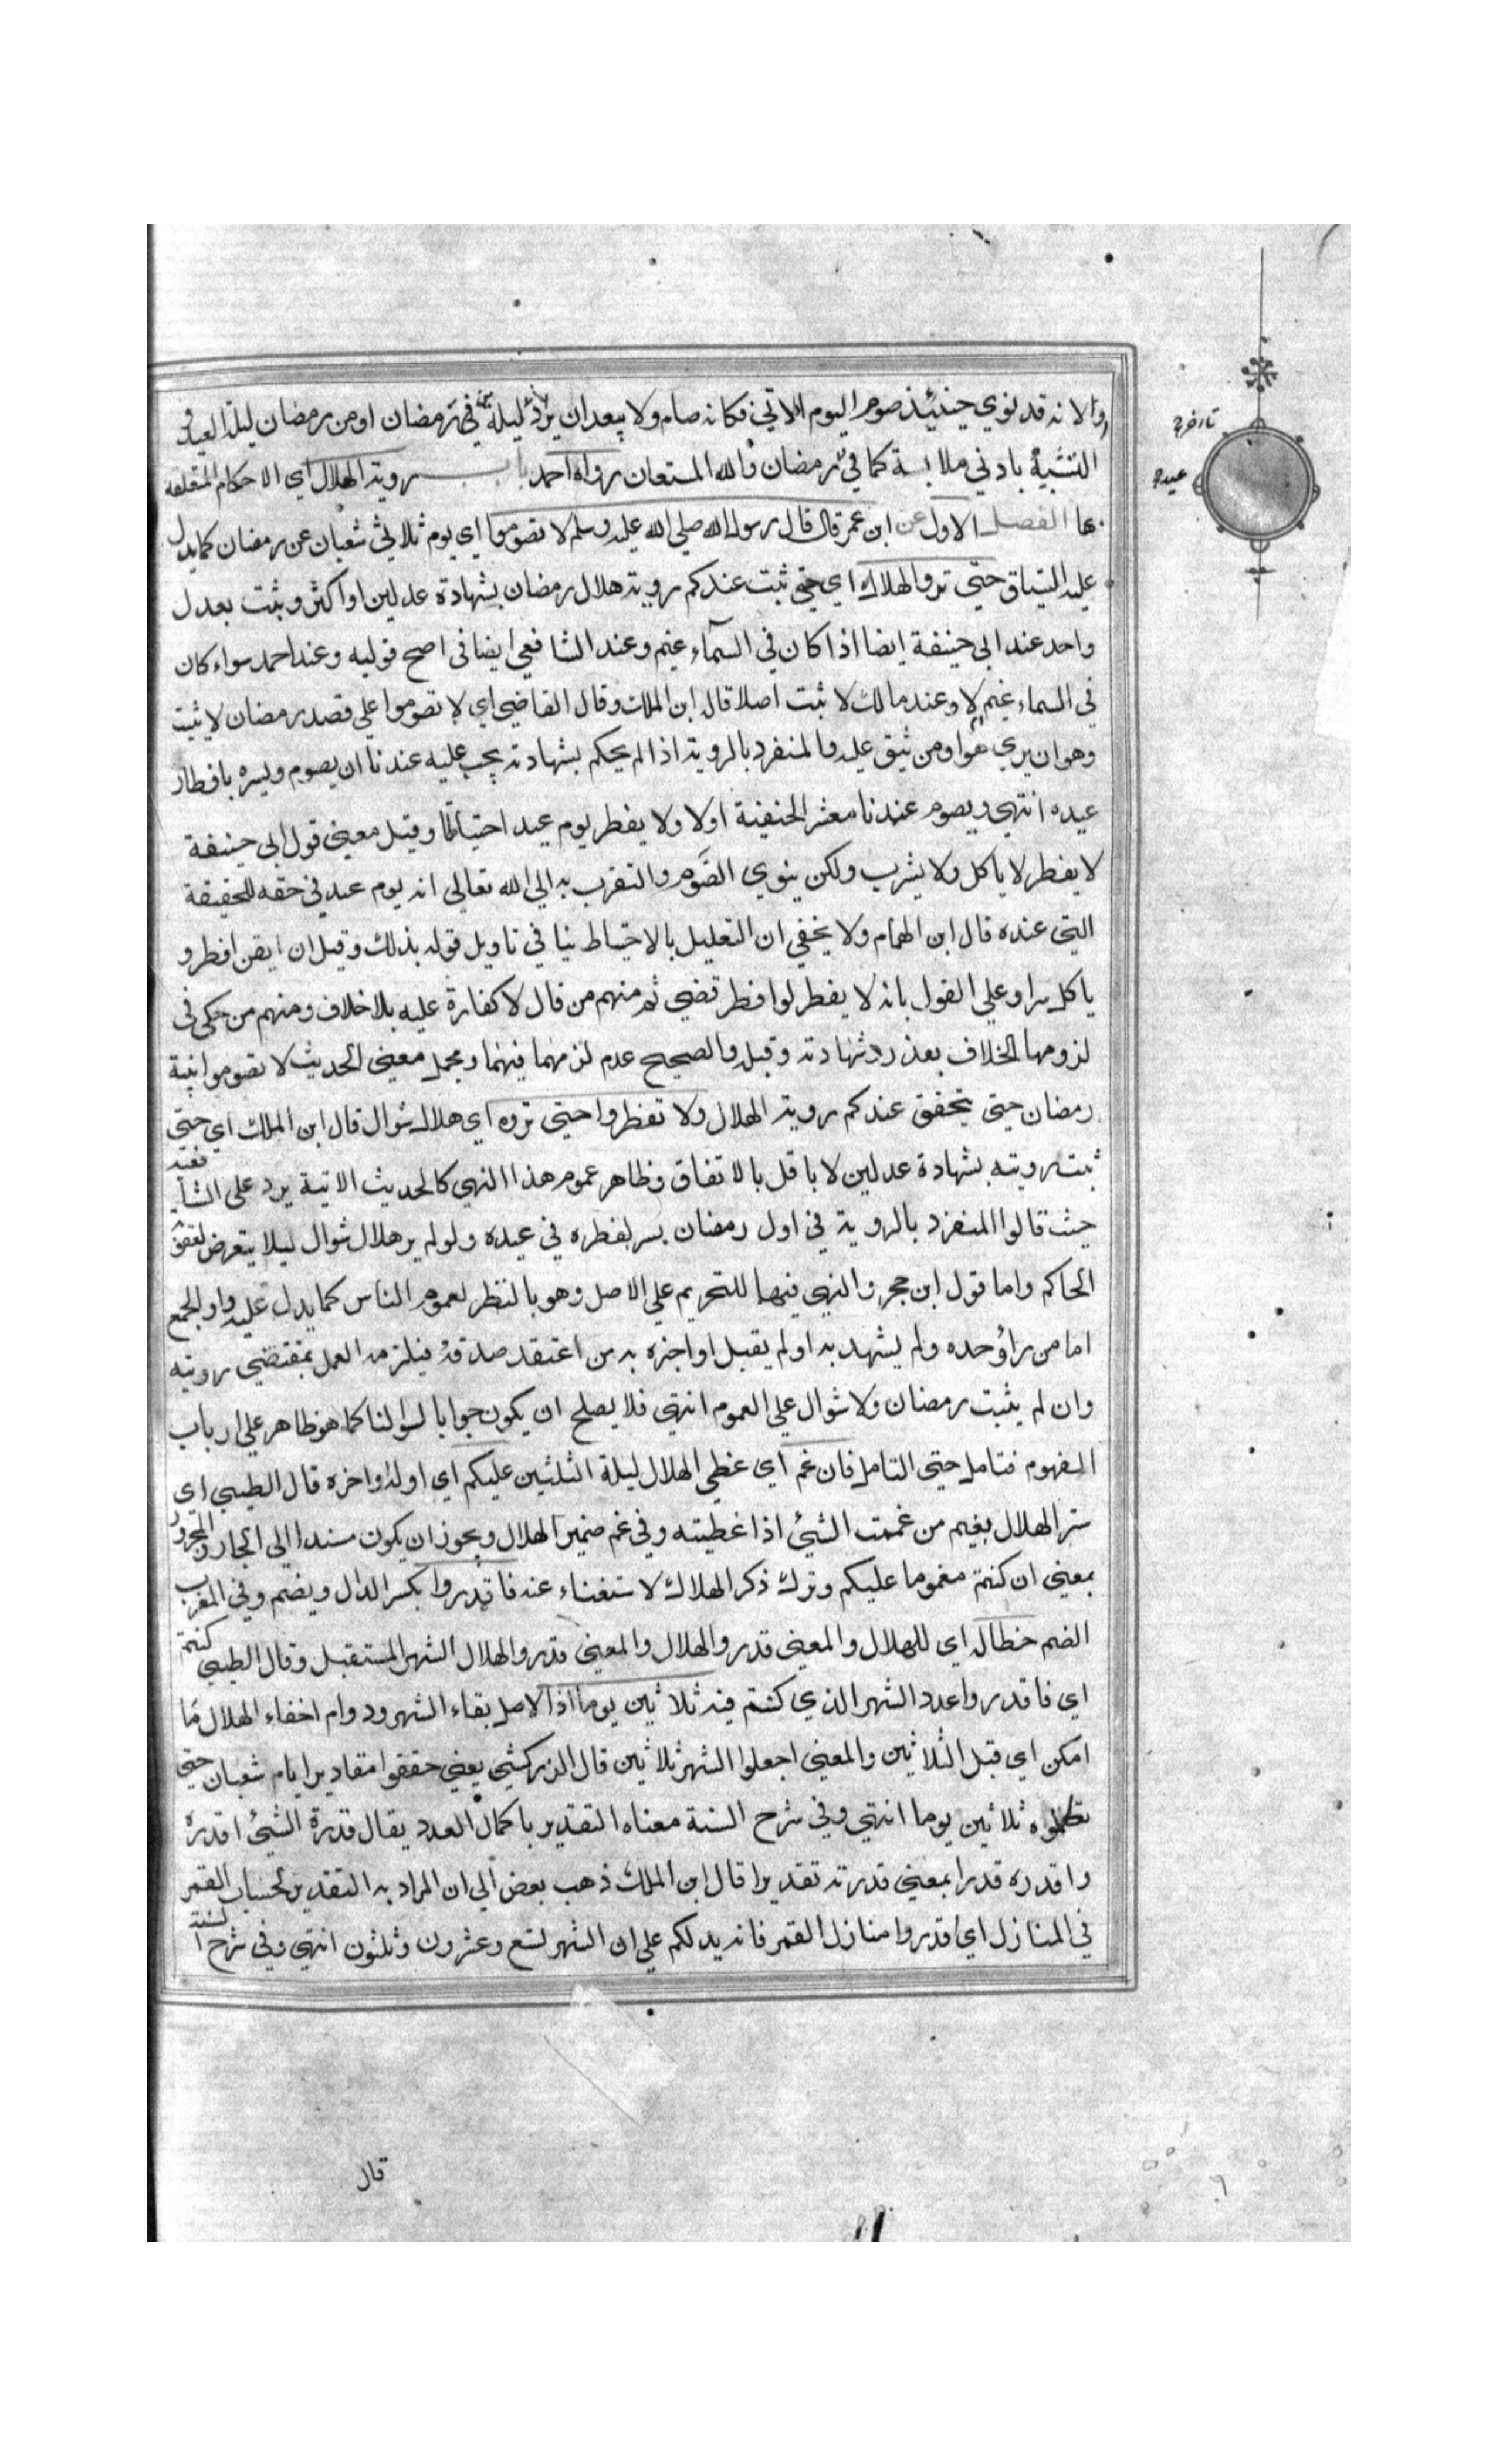 ولانه قد نوي حينئذ صوم اليوم الاتي فكانه صام ولا يبعدان يزد ليلة في رمضان اومن رمضان ليلة العيد في
التشبيه بادني ملابسة كما في رمضان والله المستعان رواه احمد باب روية الهلال اي الاحكام المتعلقة
بها الفصل الاول عن ابن عمر قال قال رسول الله صلي الله عليه وسلم لا تصوموا اي يوم ثلاثي شعبان عن رمضان كما يدل
عليه السياق حتي تروا الهلال اي حتي ثبت عندكم روية هلال رمضان بشهادة عدلين او اكثر وثبت بعدل
واحد عند ابي حنيفة ايضا اذا كان في السمآء غيم وعند الشافعي ايضا في اصح قوليه وعند احمد سواء كان
في السماء غيم ام لا وعند مالك لا ثبت اصلا قال ابن الملك وقال القاضي اي لا تصوموا علي قصد رمضان لا يثبت
وهو ان يري هوا ومن يثق عليه والمنفرد بالروية اذا لم يحكم بشهادته يجب عليه عندنا ان يصوم ويسره بافطار
عيده انتهي ويصوم عندنا معشر الحنفية اولا ولا يفطر يوم عيد احتياطا وقيل معني قول ابي حنيفة
لا يفطر لا ياكل ولا يشرب ولكن ينوي الصوم والتقرب به الي الله تعالي انه يوم عيد في حقه للحقيقة
التي عنده قال ابن الهمام ولا يخفي ان التعليل بالاحتياط ينا في تاويل قوله بذلك وقيل ان ايقن افطر و
ياكل سرا وعلي القول بانه لا يفطر لوافطر قضي ثم منهم من قال لا كفارة عليه بلاخلاف ومنهم من حكي في
لزومها الخلاف بعد رد شهادته وقبله والصحيح عدم لزمهما فيهما ومجمل معني الحديث لا تصوموا بنية
رمضان حتي يتحقق عندكم روية الهلال ولا تفطروا حتي تروه اي هلال شوال قال ابن الملك اي حتي
ثبت رويته بشهادة عدلين لا باقل بالاتفاق وظاهر عموم هذا النهي كالحديث الاتية يرد علي الشافعية
حيث قالوا المنفرد بالروية في اول رمضان يسر بفطره في عيده ولو لم ير هلال شوال ليلا يتعرض لعقوبة
الحاكم واما قول ابن حجر والنهي فيهما للتحريم علي الاصل وهو بالنظر لعموم الناس كما يدل عليه واو الجمع
اما من رآؤحده ولم يشهد به او لم يقبل او اخبره به من اعتقد صدقه فيلزمه العمل بمقتضي رويته
وان لم يثبت رمضان ولا شوال علي العموم انتهي فلا يصلح ان يكون جوابا لسوالنا كما هو ظاهر علي ارباب
الفهوم فتامل حتي التامل فان غم اي غطي الهلال ليلة الثلثين عليكم اي اوله واخره قال الطيبي اي
ستر الهلال بغيم من غممت الشيئ اذا غطيته وفي غم ضمير الهلال ويجوز ان يكون مسندا الي الجار والمجرور
بمعني ان كنتم مغموما عليكم وترك ذكر الهلال لاستغناء عنه فاقدروا بكسر الدال ويضم وفي المغرب
الضم خطا له اي للهلال والمعني قدروالهلال والمعني قدروالهلال الشهر المستقبل وقال الطيبي
اي فاقدروا عدد الشهر الذي كنتم فيه ثلاثين يوما اذ الاصل بقاء الشهر ودوام اخفاء الهلال ما
امكن اي قبل الثلاثين والمعني اجعلوا الشهر ثلاثين قال الزركشي يعني حققوا مقادير ايام شعبان حتي
تكملوه ثلاثين يوما انتهي وفي شرح السنة معناه التقدير باكمال العدد يقال قدرة الشيئ اقدره
واقدره قدرا بمعني قدرته تقديرا قال ابن الملك ذهب بعض الي ان المراد به التقدير بحساب القمر
في المنازل اي اقدروا منازل القمر فانه يدلكم علي ان الشهر تسع وعشرون وثلثون انتهي وفي شرح السنة
قال